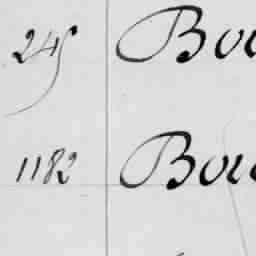 245 Bou
1182 Bou